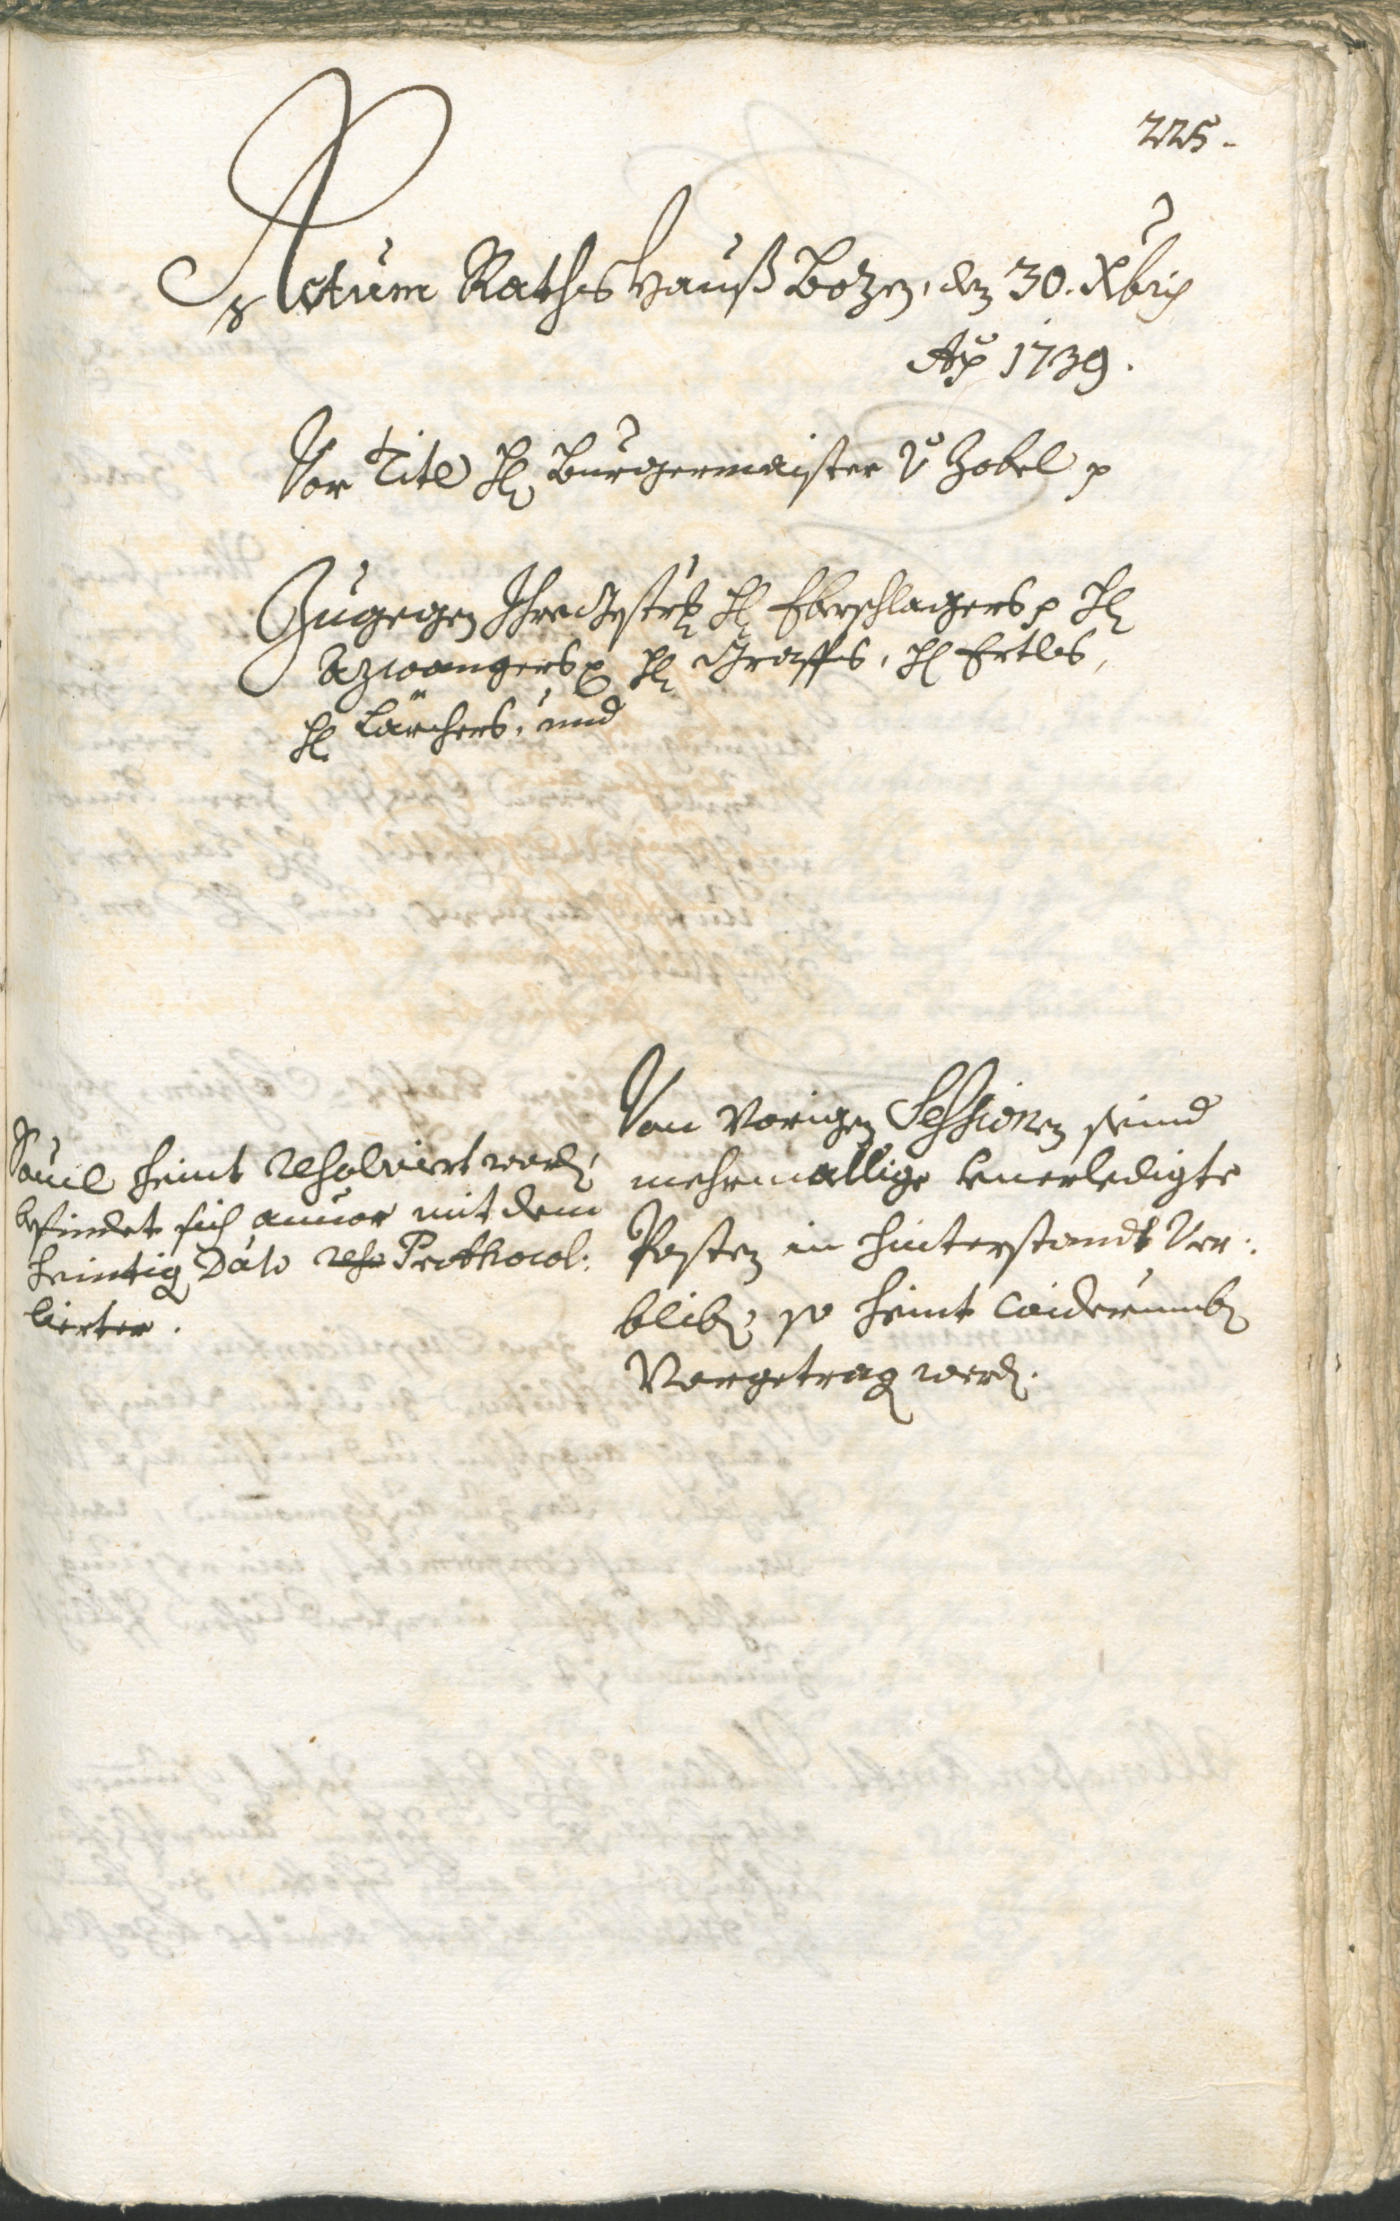 225.
Actum Rathshauß Bozen, den 30. Xbris
Ao 1739.
Vor Titl H. Burgermaister v. Zobel p
Zugegen Ihro Gestr. H. Eberschlagers p H.
Azwangers p H. Graffs, H. Ertles,
H. Lärchers, und
Von vorigen Sessionen seind
mehrmallige unerledigte
Posten in hinterstandt ver:
bliben, so heint widerumben
Vorgetragen werden.
Sovil heint resolviert worden,
befindet sich anvor mit dem
heintigen Dato Prothocol:
lierter.